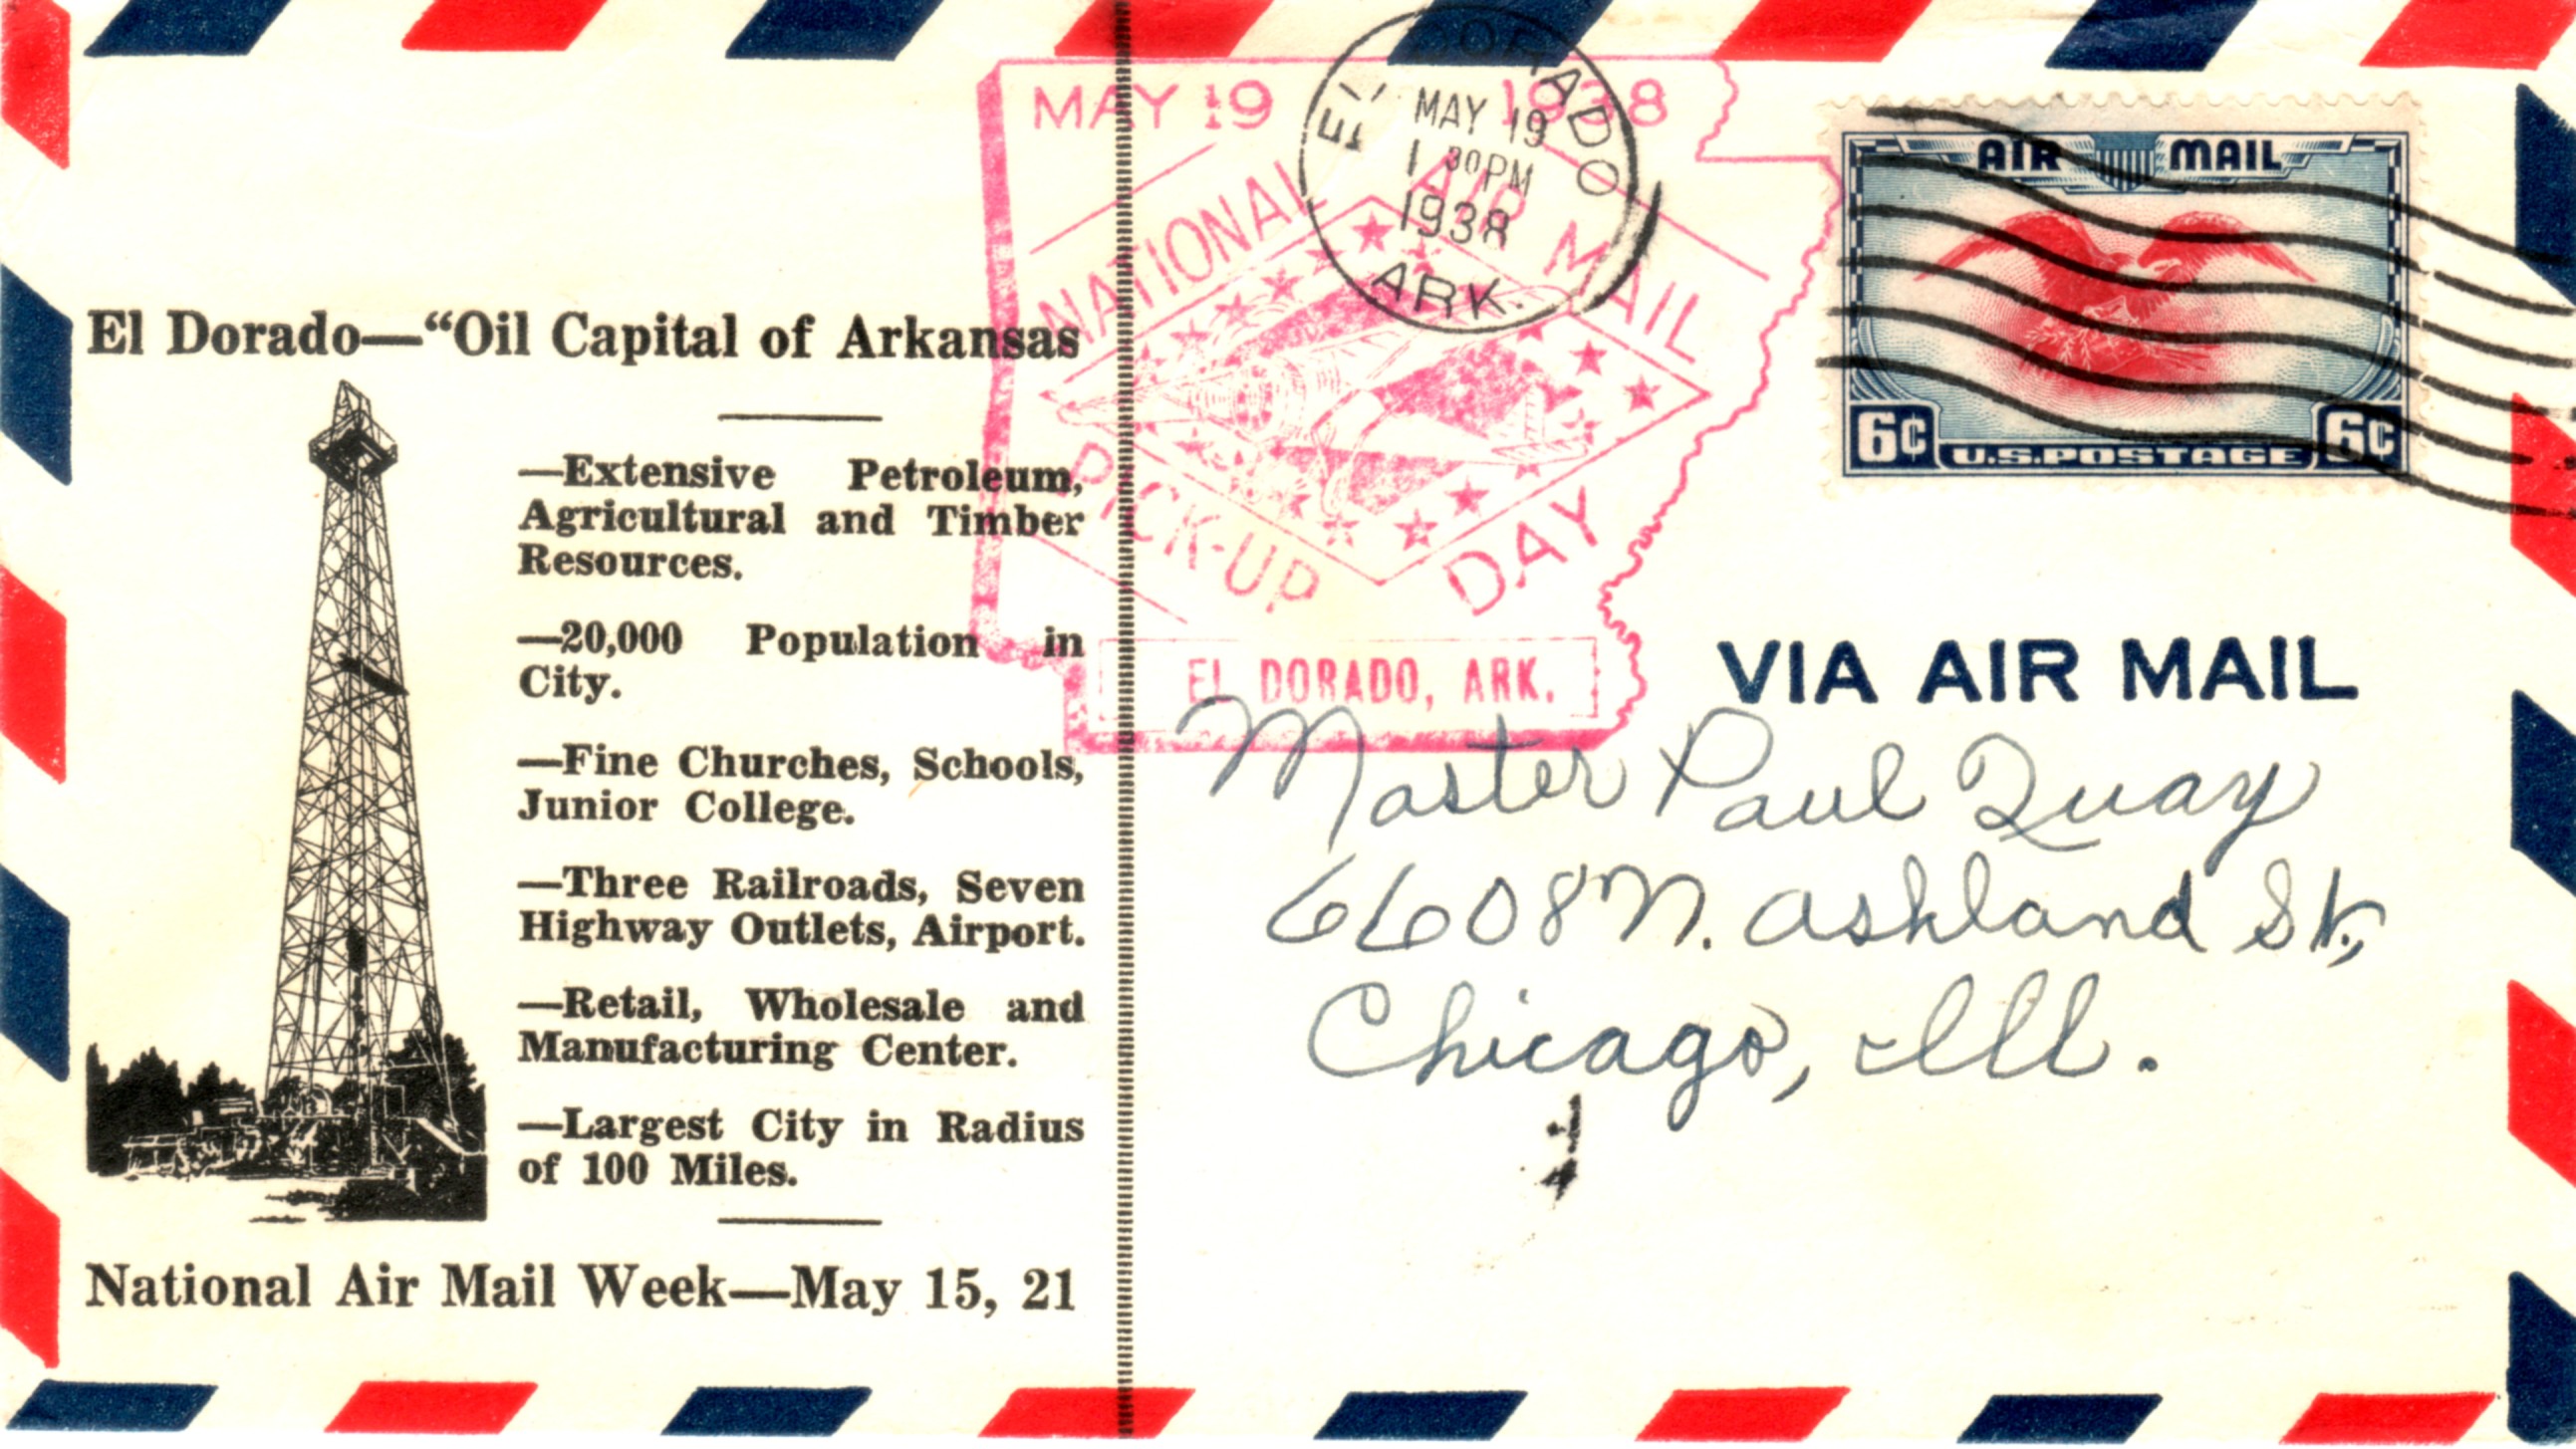 El Dorado—“Oil Capital of Arkansas
—Extensive Petroleum,
Agricultural and Timber
Resources.
—20,000 Population in
City.
—Fine Churches, Schools,
Junior College.
—Three Railroads, Seven
Highway Outlets, Airport.
—Retail, Wholesale and
Manufacturing Center.
—Largest City in Radius
of 100 Miles.
National Air Mail Week—May 15, 21
MAY 19 1938
NATIONAL AIR MAIL
PICK-UP DAY
EL DORADO, ARK.
EL DORADO
MAY 19
1 30PM
1938
ARK.
AIR MAIL
6¢ U.S.POSTAGE 6¢
VIA AIR MAIL
Master Paul Quay
6608 N. Ashland St.,
Chicago, Ill.